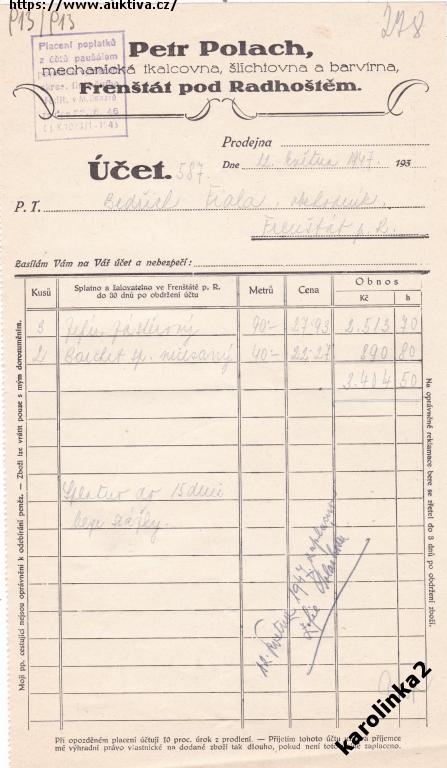 https://www.auktiva.cz/
P13/P13
278
Placení poplatků
z účtů paušálem
Petr Polach,
mechanická tkalcovna, šlichtovna a barvírna,
Frenštát pod Radhoštěm.
Prodejna
Účet. 587.
Dne 12. května 1947. 193
P. T. Bedřich Fiala, obchodník,
Frenštát p. R.
Zasílám Vám na Váš účet a nebezpečí:
Kusů
Splatno a žalovatelno ve Frenštátě p. R.
do 30 dnů po obdržení účtu
Metrů
Cena
Obnos
Kč h
3 Zefir zástěrový 90·- 27·93 2.513 70
2 Barchet sp. 40·- 22·27 890 80
3.404 50
Splatno do 15 dnů
bez srážky.
12. května 1947 zaplaceno
Moji pp. cestující nejsou oprávněni k odebírání peněz. — Zboží lze vrátit pouze s mým dorozuměním.
Na oprávněné reklamace bere se zřetel do 8 dnů po obdržení zboží.
Při opozděném placení účtuji 10 proc. úrok z prodlení. — Přijetím tohoto účtu
mé výhradní právo vlastnické na dodané zboží tak dlouho, pokud není zaplaceno.
karolinka2